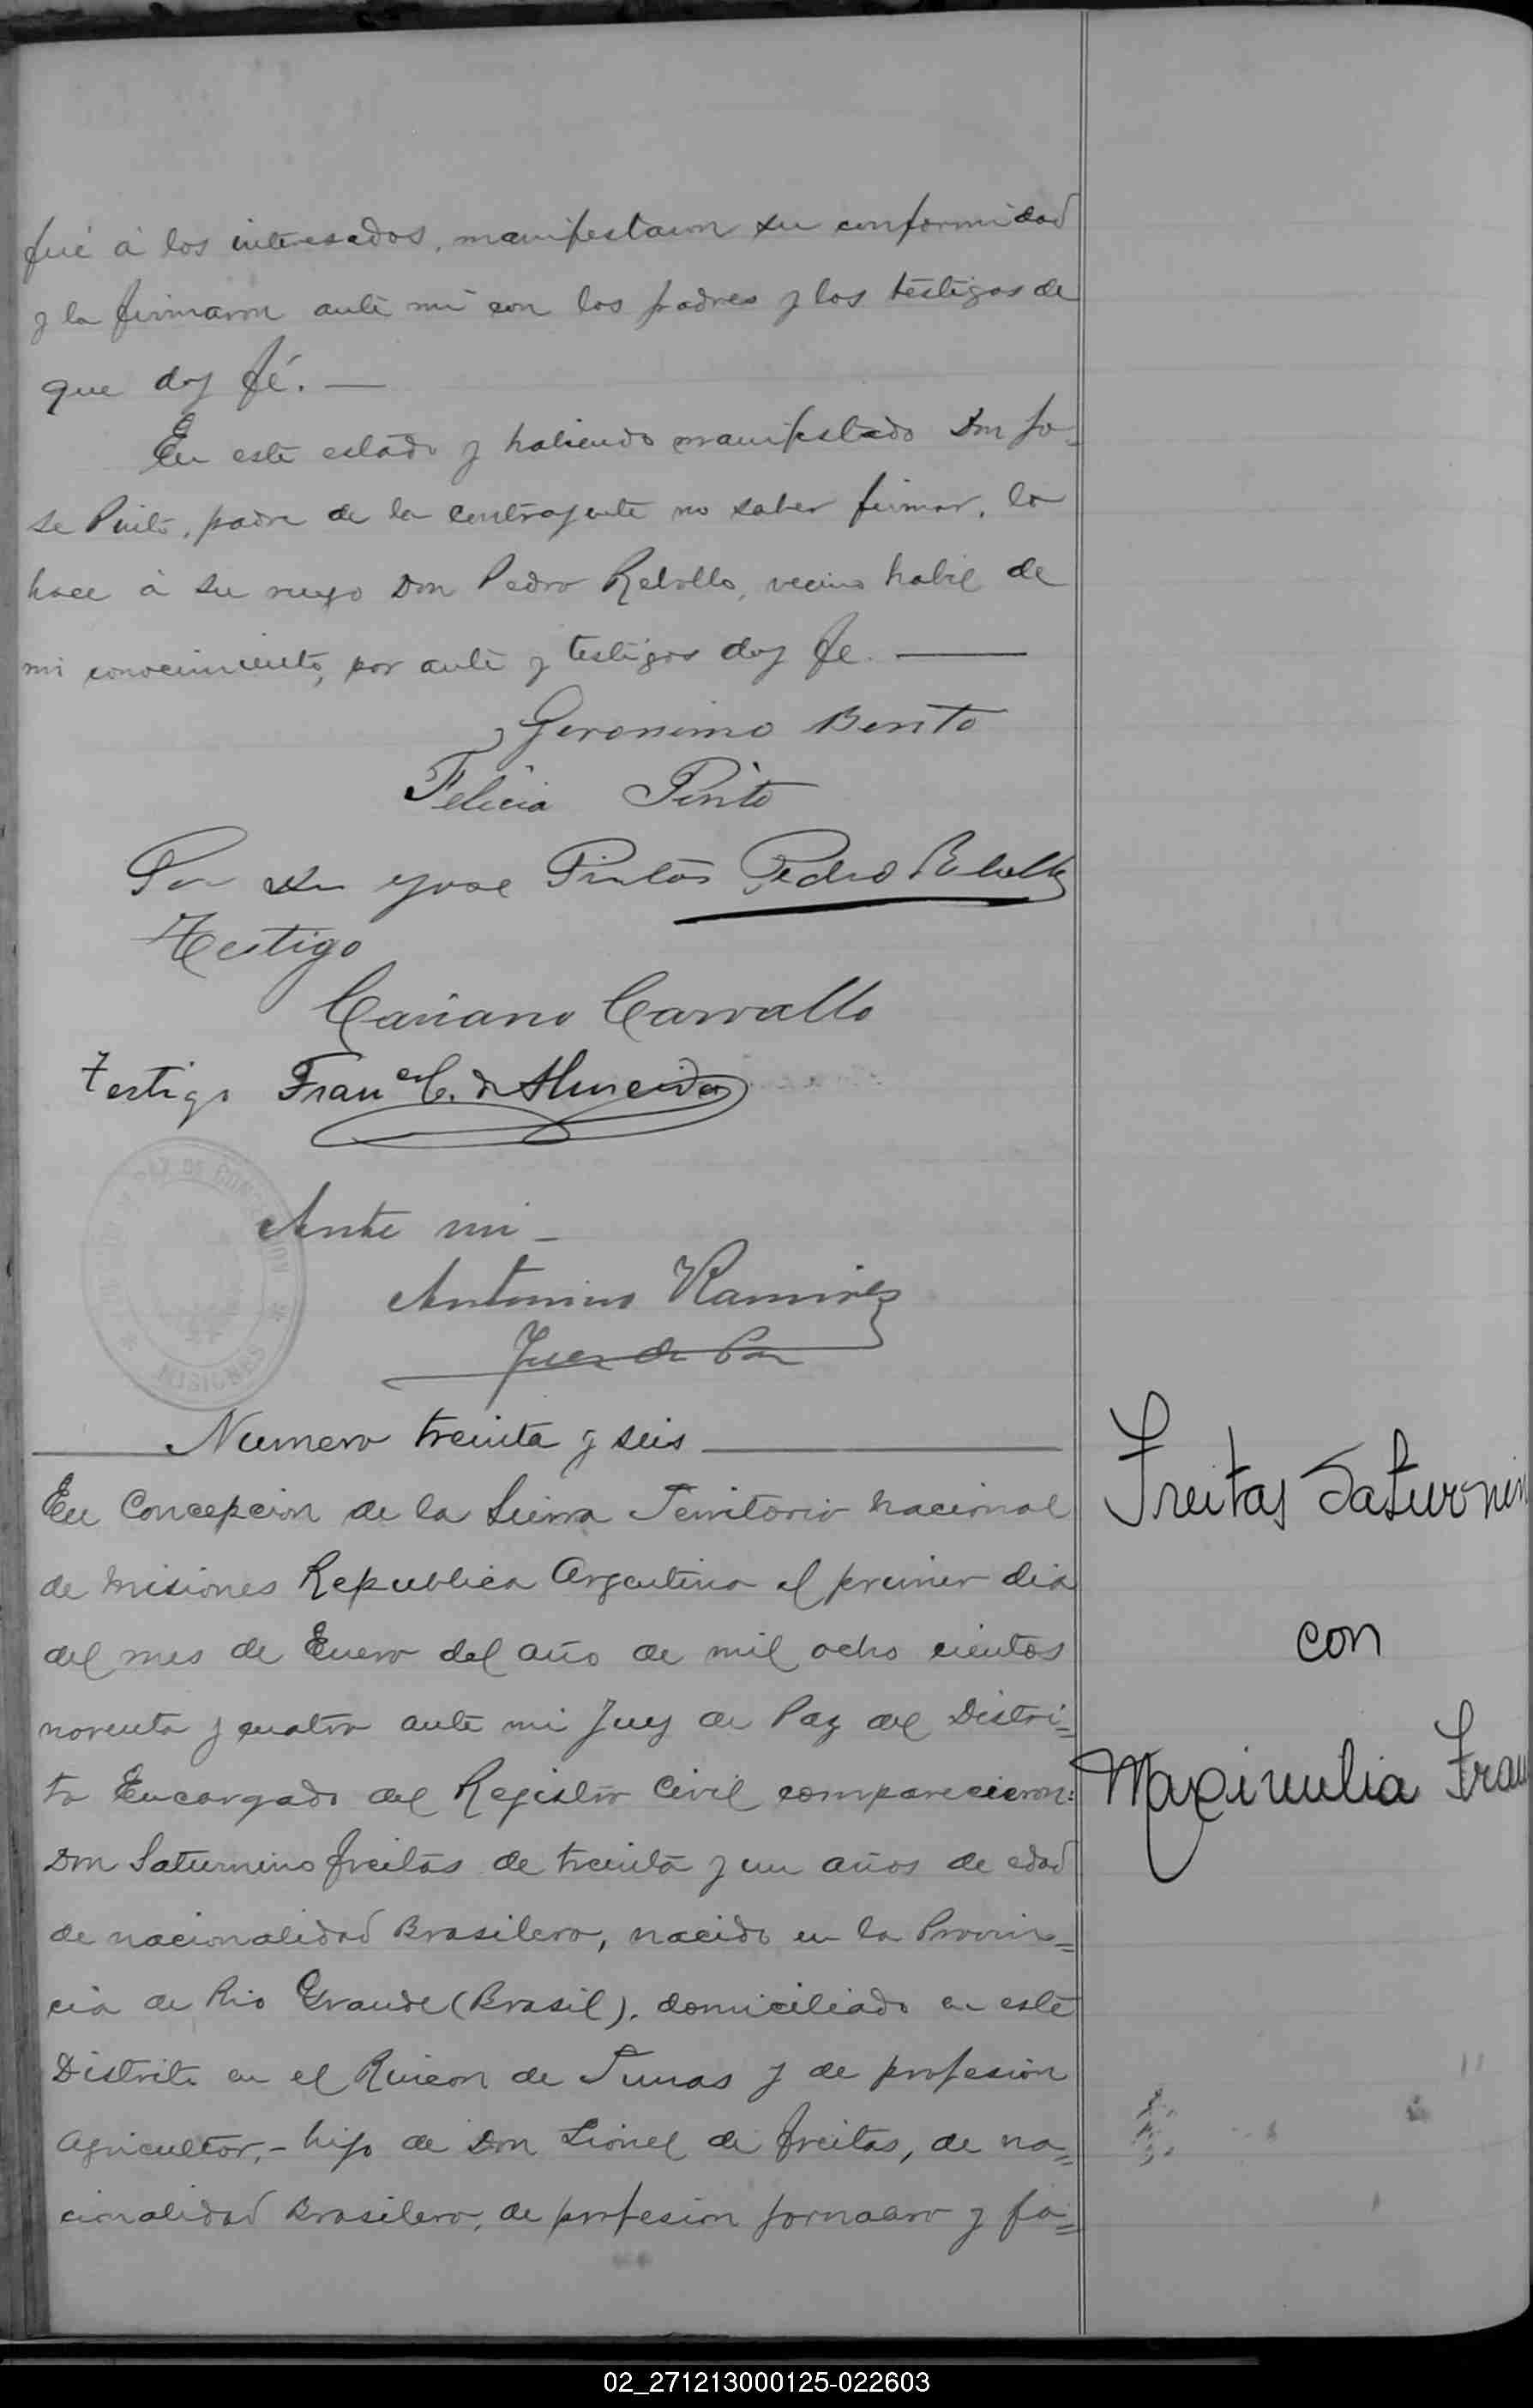 fué á los interesados, manifestaron su conformidad
y la firmaron ante mi con los padres y los testigos de
que doy fé. —
En este estado y habiendo manifestado Don Jo-
se Pinto, padre de la contrayente no saber firmar, lo
hace á su ruego Don Pedro Rebollo, vecino habil de
mi conocimiento, por ante y testigos doy fe. —
Geronimo Bento
Felicia Pinto
Por Don Jose Pintos Pedro Rebollo
Testigo
Mariano Carvallo
Testigo Franco C. de Almeida
PAZ DE CONCEPCION
MISIONES
Ante mi -
Antonino Ramirez
Juez de Paz
Numero treinta y seis
En Concepcion de la Sierra Territorio nacional
de Misiones Republica Argentina el primer dia
del mes de Enero del año de mil ocho cientos
noventa y cuatro ante mi Juez de Paz del Distri=
to Encargado del Registro Civil comparecieron:
Don Saturnino Freitas de treinta y un años de edad
de nacionalidad Brasilero, nacido en la Provin=
cia de Rio Grande (Brasil), domiciliado en este
Distrito en el Rincon de Tunas y de profesion
Agricultor,- hijo de Don Lionel de Freitas, de na=
cionalidad Brasilero, de profesion jornalero y fa=
Freitas Saturnin
con
Maximilia Fran
02_271213000125-022603